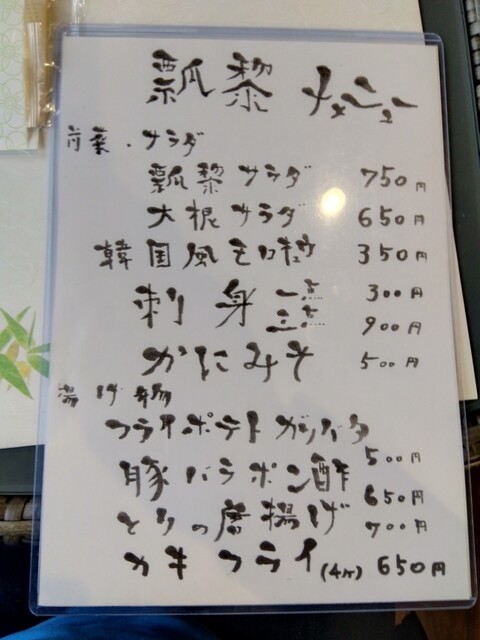 瓢黎 メニュー
前菜・サラダ
瓢黎サラダ 750円
大根サラダ 650円
韓国風モロキュウ 350円
刺身 一点 300円
三点 900円
かにみそ 500円
揚げ物
フライポテトガリバタ 500円
豚バラポン酢 650円
とりの唐揚げ 700円
カキフライ(4ヶ) 650円